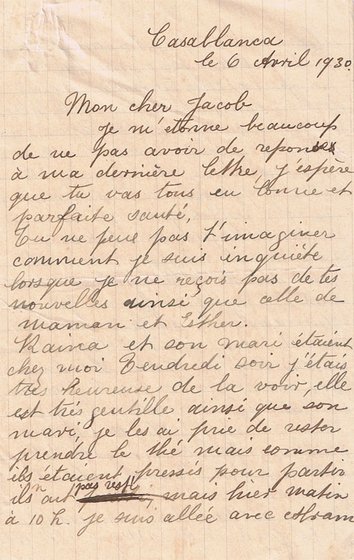 Casablanca
le 6 Avril 1930
Mon cher Jacob
Je m'étonne beaucoup
de ne pas avoir de reponses
à ma dernière lettre, j'espère
que tu vas tous en bonne et
parfaite santé,
Tu ne peux pas t'imaginer
comment je suis inquiète
lorsque je ne reçois pas de tes
nouvelles ainsi que celle de
maman et Esther.
et son mari étaient
chez moi Vendredi soir j'étais
très heureuse de la voir, elle
est très gentille ainsi que son
mari, je les ai prié de rester
prendre le thé mais comme
ils étaient pressis pour partir
ils n'ont pas mais hier matin
à 10 h. je suis allée avec